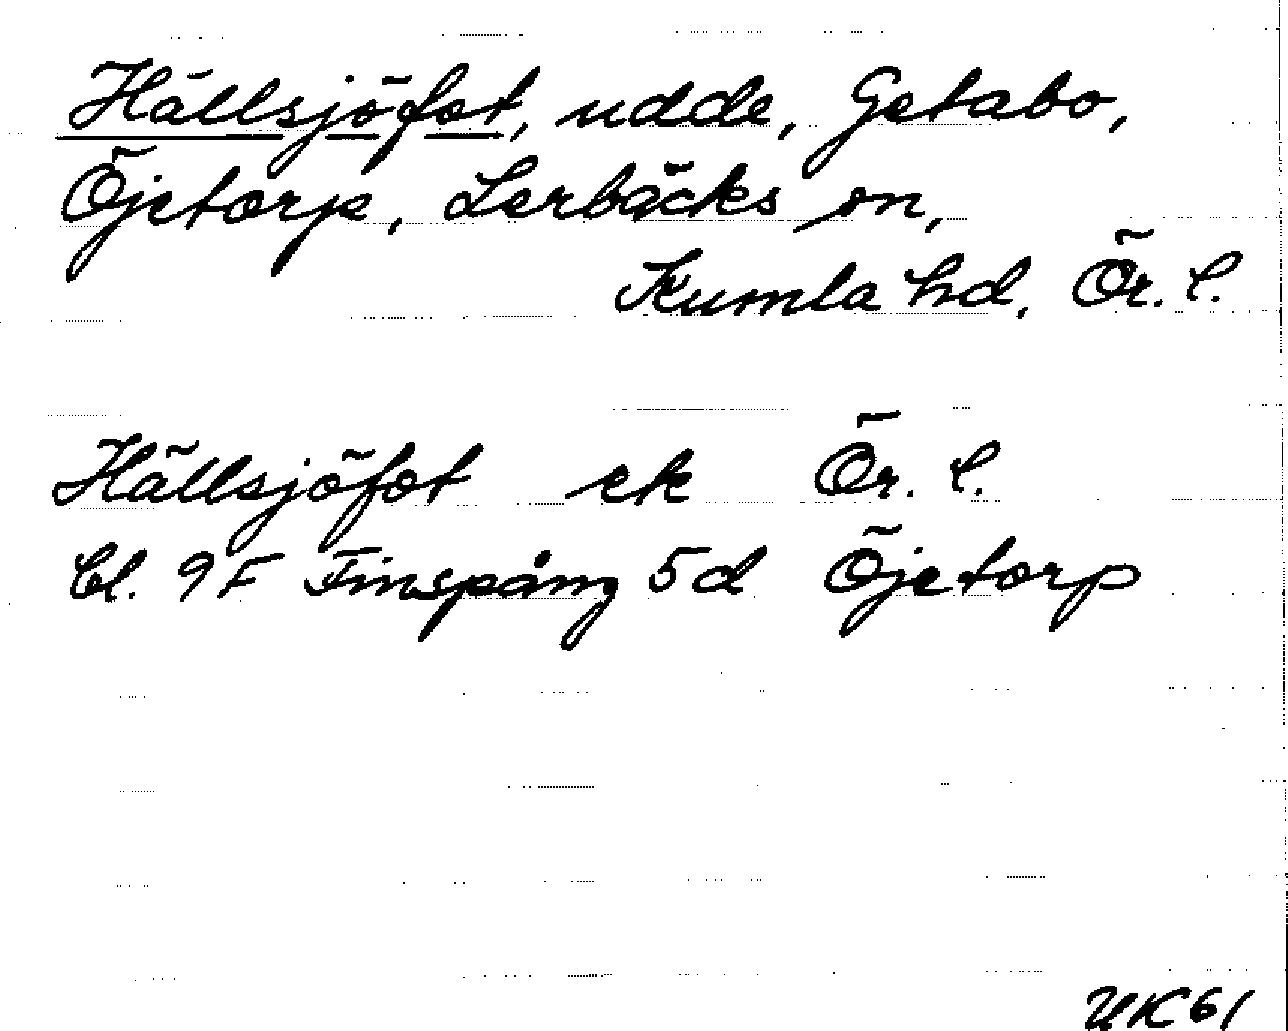 Hällsjöfot, udde, Getabo,
Öjetorp, Lerbäcks sn,
Kumla hd, Ör. l.
Hällsjöfot ek Ör. l.
bl. 9F Finspång 5d Öjetorp
UK 61